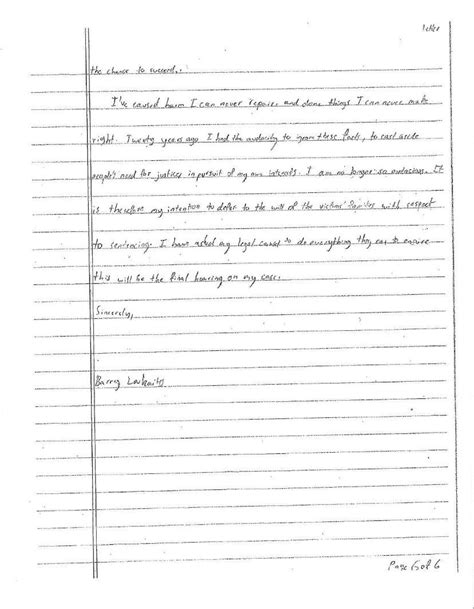 letter
the chance to succeed.
I've caused harm I can never repair and done things I can never make
right. Twenty years ago I had the audacity to ignore these facts, to cast aside
people's need for justice in pursuit of my own interests. I am no longer so audacious. It
is therefore my intention to defer to the will of the victims' families with respect
to sentencing. I have asked my legal counsel to do everything they can to ensure
this will be the final hearing on my case.
Sincerely,
Barry Loukaitis
Page 6 of 6